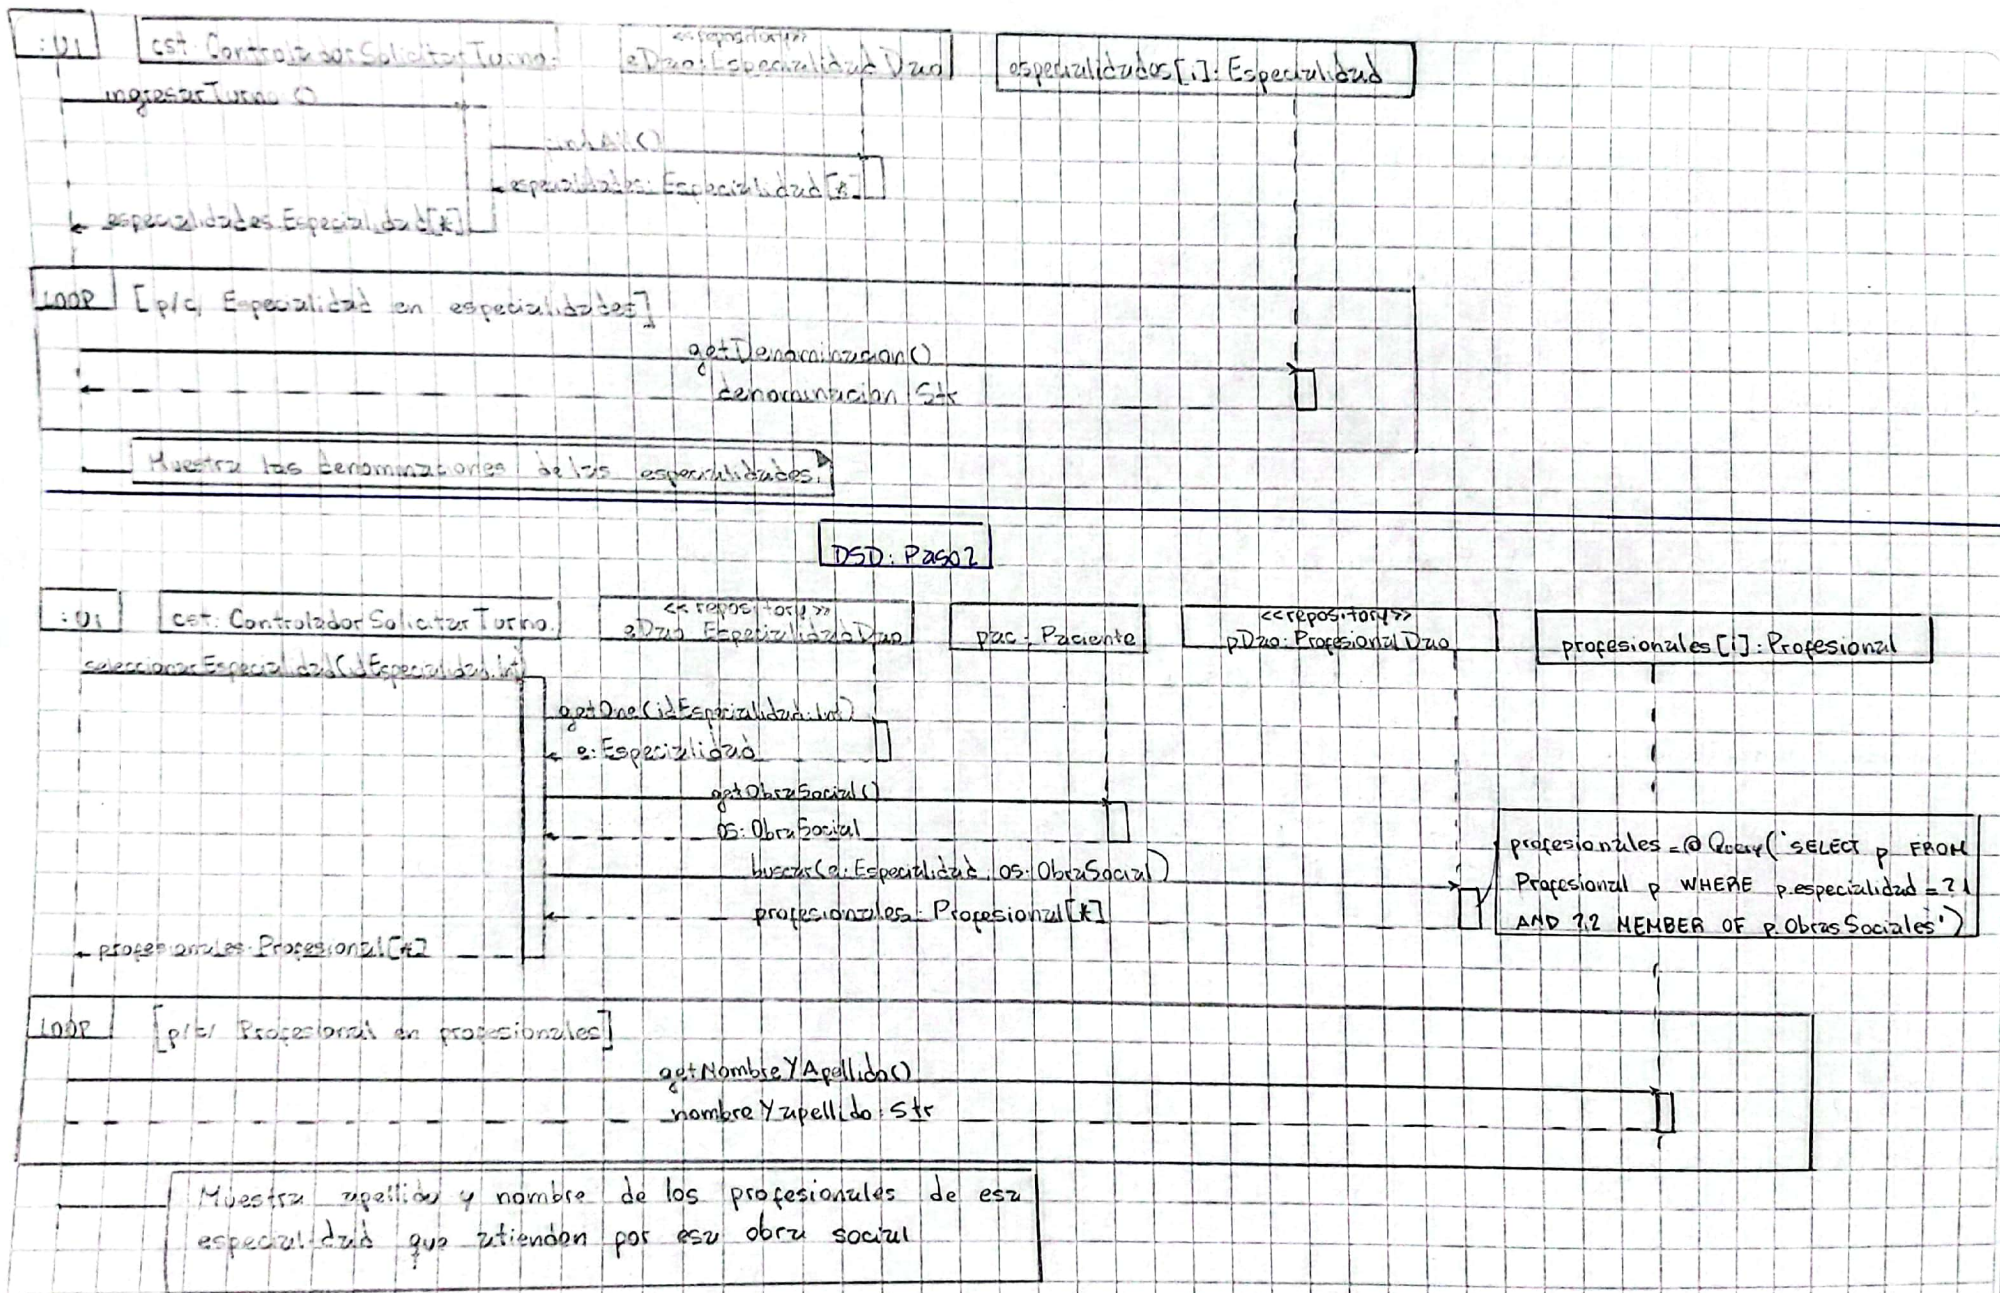 :UI
cst: ControladorSolicitarTurno.
<<repository>>
eDao: EspecialidadDao
especialidades[i]: Especialidad
ingresarTurno()
findAll()
especialidades: Especialidad[*]
especialidades: Especialidad[*]
LOOP [p/c/ Especialidad en especialidades]
getDenominacion()
denominacion: Str
Muestra las denominaciones de las especialidades.
DSD: Paso2
:UI
cst: ControladorSolicitarTurno.
<<repository>>
eDao: EspecialidadDao
pac: Paciente
<<repository>>
pDao: ProfesionalDao
profesionales[i]: Profesional
seleccionarEspecialidad(idEspecialidad: int)
getOne(idEspecialidad: Int)
e: Especialidad
getObraSocial()
os: ObraSocial
buscar(e: Especialidad, os: ObraSocial)
profesionales: Profesional[*]
profesionales = @Query('SELECT p FROM
Profesional p WHERE p.especialidad = ?1
AND ?2 MEMBER OF p.ObrasSociales')
profesionales: Profesional[*]
LOOP [p/c/ Profesional en profesionales]
getNombreYApellido()
nombreYapellido: Str
Muestra apellido y nombre de los profesionales de esa
especialidad que atienden por esa obra social